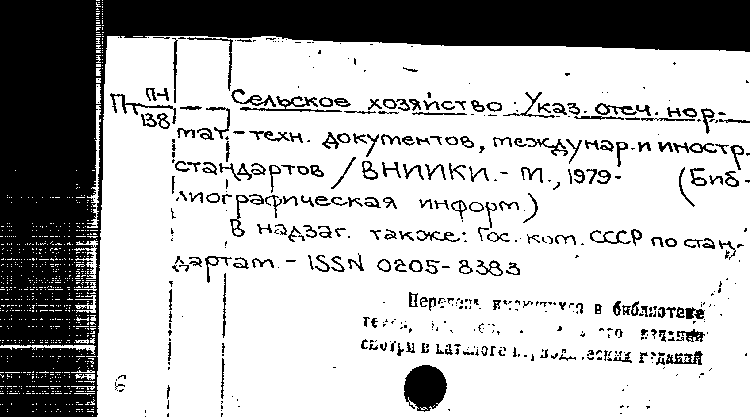 Пт П-Н
138
Сельское хозяйство: Указ. отеч. нор-
мат.-техн. документов, междунар. и иностр.
стандартов / ВНИИКИ. - М., 1979- (Биб-
лиографическая информ.)
В надзаг. также: Гос. ком. СССР по стан-
дартам. - ISSN 0205-8383
Перечень имеющихся в библиотеке
издания
смотри в каталоге изданий
6